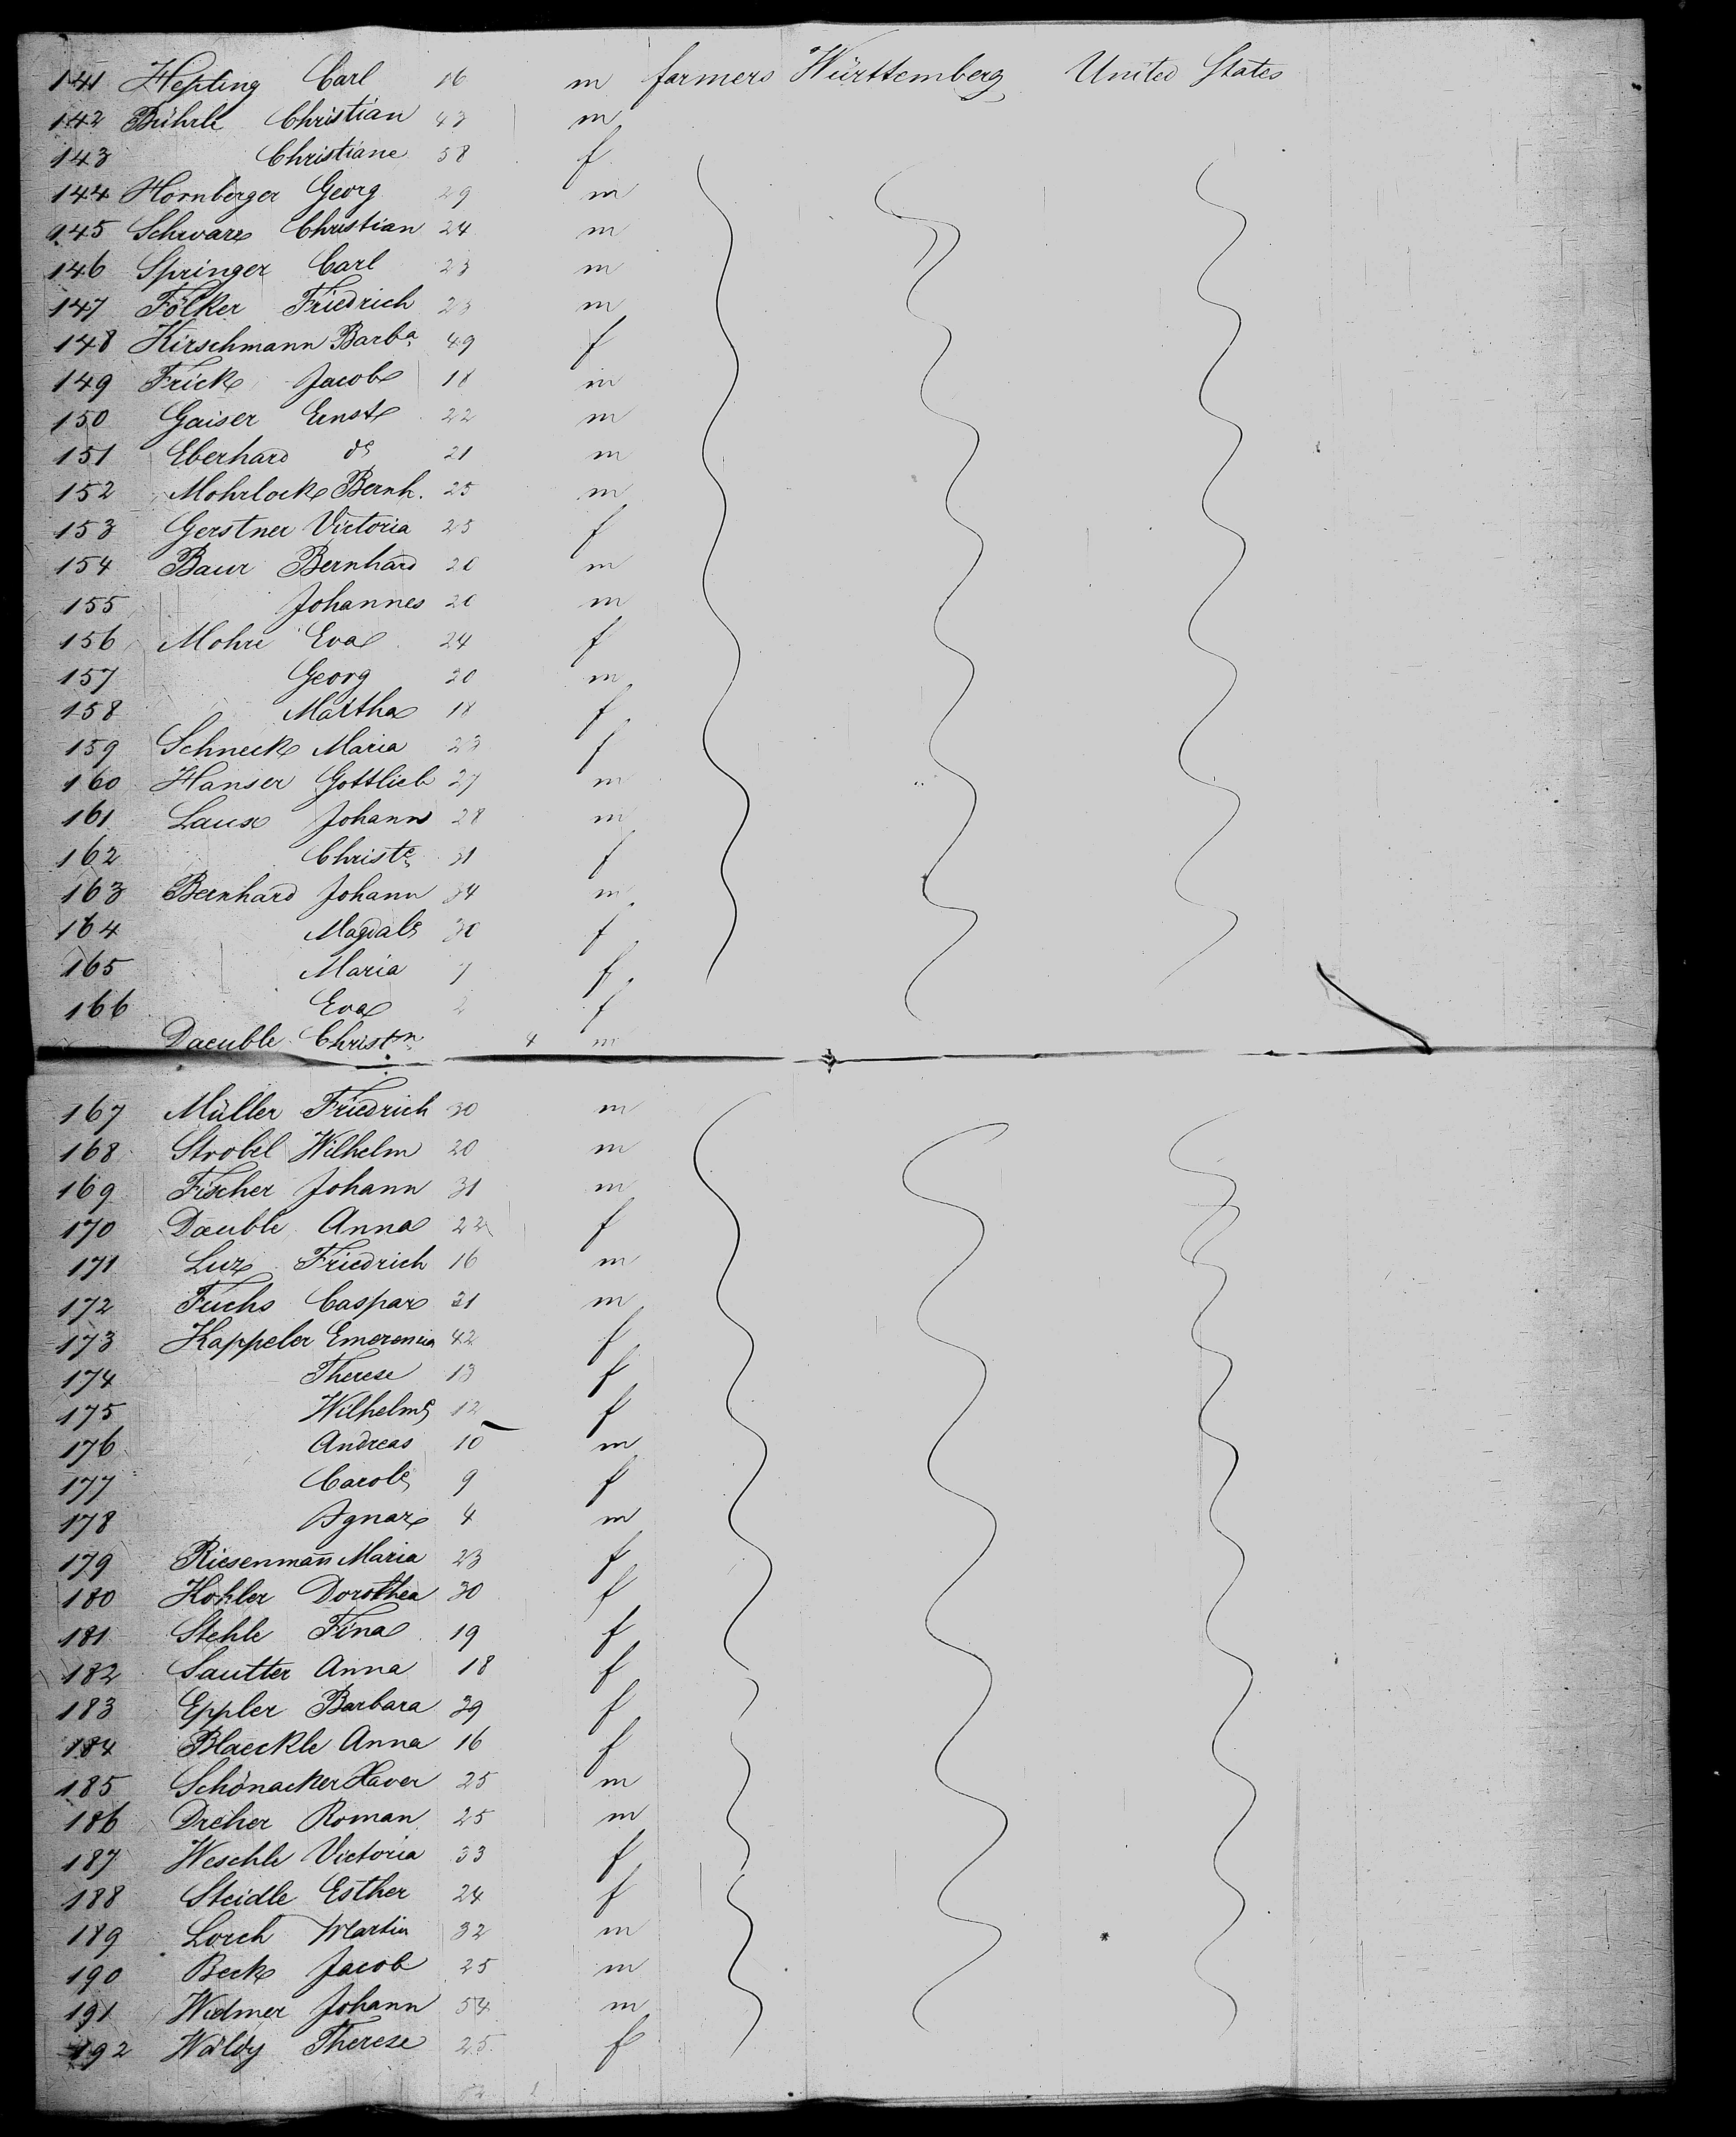 141 Hepting Carl 16 m farmers Württemberg United States
142 Bührle Christian 43 m
143 Christiane 58 f
144 Hornberger Georg 29 m
145 Schwarz Christian 24 m
146 Springer Carl 23 m
147 Fölker Friedrich 23 m
148 Kirschmann Barba 49 f
149 Frick Jacob 18 m
150 Gaiser Ernst 22 m
151 Eberhard do 21 m
152 Mohrlock Bernh. 25 m
153 Gerstner Victoria 25 f
154 Baur Bernhard m
155 Johannes m
156 Mohre Eva 24 f
157 Georg 20 m
158 Martha 18 f
159 Schneck Maria 23 f
160 Hanser Gottlieb 27 m
161 Laux Johann 28 m
162 Christe 31 f
163 Bernhard Johann 34 m
164 Magdale 30 f
165 Maria 7 f
166 Eva 2 f
Daeuble Christn 4 m
167 Müller Friedrich 30 m
168 Strobel Wilhelm 20 m
169 Fischer Johann 31 m
170 Daeuble Anna 22 f
171 Luz Friedrich 16 m
172 Fuchs Caspar 31 m
173 Kappeler Emerenzia 42 f
174 Therese 13 f
175 Wilhelme 12 f
176 Andreas 10 m
177 Carole 9 f
178 Ignaz 4 m
179 Riesenmañ Maria 23 f
180 Kohler Dorothea 30 f
181 Stehle Fina 19 f
182 Sautter Anna 18 f
183 Eppler Barbara 39 f
184 Blaeckle Anna 16 f
185 Schönacker Xaver 25 m
186 Dreher Roman 25 m
187 Weschle Victoria 33 f
188 Steidle Esther 24 f
189 Lorch Martin 32 m
190 Beck Jacob 25 m
191 Widmer Johann 54 m
192 Wäldy Therese 25 f